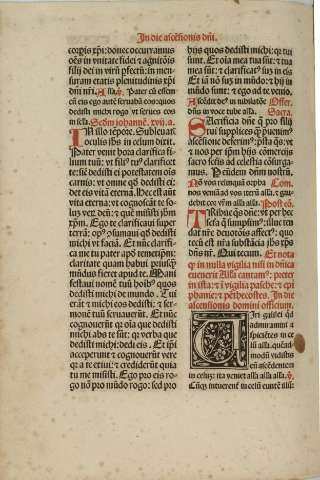 In die ascēsionis dn̄i.
corꝑis xp̄i: donec occurramus
oēs in vnitatē fidei ⁊ agnitōis
filij dei in virū ꝑfectū: in men-
suram etatis plenitudinis xp̄i
dn̄i nr̄i. Alla. ꝟ. Pater cū essem
cū eis ego autē seruabā eos: quos
dedisti michi
in sela. Scdm̄ johannē. xvij. a.
IN illo tēpore. Subleuat̉
oculis ihs̄ in celum dixit.
Pater venit hora clarifica fi-
lium tuū: vt fili9 tu9 clarificet
te: sicut dedisti ei potestatem oīs
carnis: vt omne qd̄ dedisti ei:
det eis vitā eternā. Hec est aūt
vita eterna: vt cognoscāt te so-
lū verū deū: ⁊ quē misisti ihm̄
xpm̄. Ego te clarificaui super
terrā: op9 ꝯsumaui qd̄ dedisti
michi vt faciā. Et nūc clarifi-
ca me tu pater apd̄ temetip̄m:
claritate quam habui priusq̄
mūdus fieret apud te. Mani
festaui nomē tuū hoīb9 quos
dedisti michi de mundo. Tui
erāt ⁊ michi eos dedisti: ⁊ ser-
monē tuū seruauerūt. Et nūc
cognouerūt qr oīa que dedisti
michi abs te sūt: qr verba que
dedisti michi: dedi eis. Et ip̄i
acceperunt ⁊ cognouerūt vere
qr a te exiui: ⁊ crediderūt quia
tu me misisti. Ego pro eis ro-
go nō pro mūdo rogo: sed pro
hijs quos dedisti michi: qr tui
sunt. Et oīa mea tua sūt: ⁊ tua
mea sūt: ⁊ clarificat9 suꝫ in eis
Et iā nō suꝫ in mūdo: ⁊ hij in
mūdo sunt: ⁊ ego ad te venio.
Ascēdit de9 in iubilatōe Offer.
dn̄s in voce tube alla. Sacra.
Sacrificia dn̄e q̄ pro filij
tui supplices q̄ʒ venerān̄
ascensione deferim9: p̄sta q̄s: vt
⁊ nos per ip̄m hijs cōmercijs
sacro sctis ad celestia cōsurga-
mus. P eūdem dn̄m nostrū.
Nō vos relinquā orphā Com.
nos veniā ad vos iterū alla. ⁊ gau-
debit cor vestrū alla. Post cō.
Tribue q̄s dn̄e: vt per hec
sacra q̄ sumpsim9: illuc ten
dat nr̄e deuotōis affect9: quo
tecū est nr̄a substācia ihs̄ xp̄s
dn̄s nr̄. Qui tecum. Et nota
q̄ in nulla vigilia nisi in dn̄ica
euenerit Alla cantam9: preter
in ista: ⁊ vigilia pasche: ⁊ epi
phanie: ⁊ pēthecostes. In die
ascensionis domini officium.
Uiri galilei qd
admiramini a
spiciētes in ce
lū alla. quēad-
modū vidistis
eū ascēdentem
in celuꝫ: ita veniet alla alla alla. ꝟ.
Cūq̄ intuerent̉ in celū euntē illū: